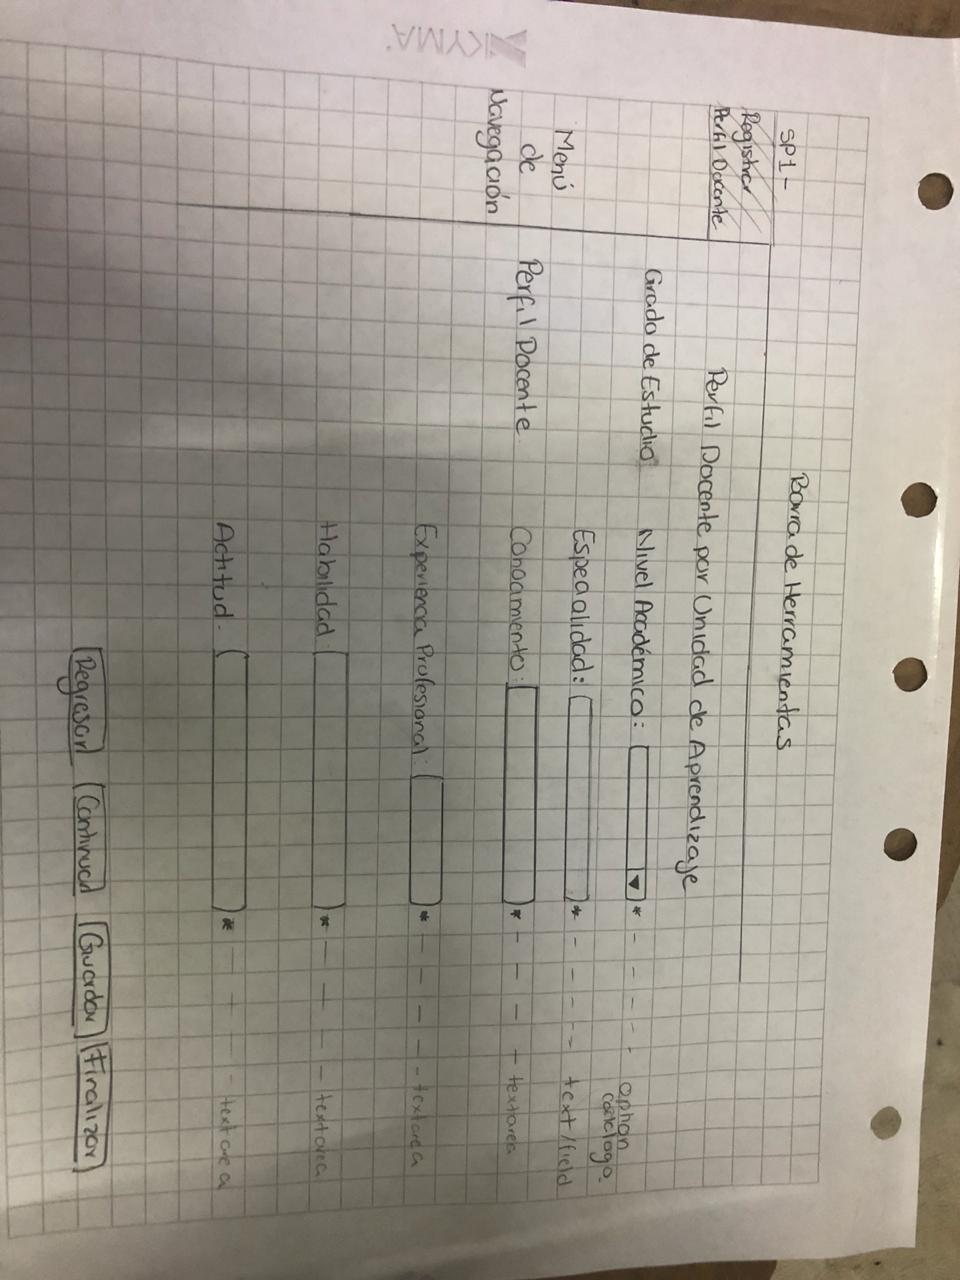 KYMA
SP1-
Registrar
Perfil Docente
Barra de Herramientas
Perfil Docente por Unidad de Aprendizaje
Menú
de
Navegación
Grado de Estudio
Nivel Académico: * - - - - option
catálogo.
Especialidad: * - - - - text/field
Perfil Docente
Conocimiento: * - - - - textarea
Experiencia Profesional: * - - - - textarea
Habilidad: * - - - - textarea
Actitud: * - - - - textarea
Regresar Continuar Guardar Finalizar